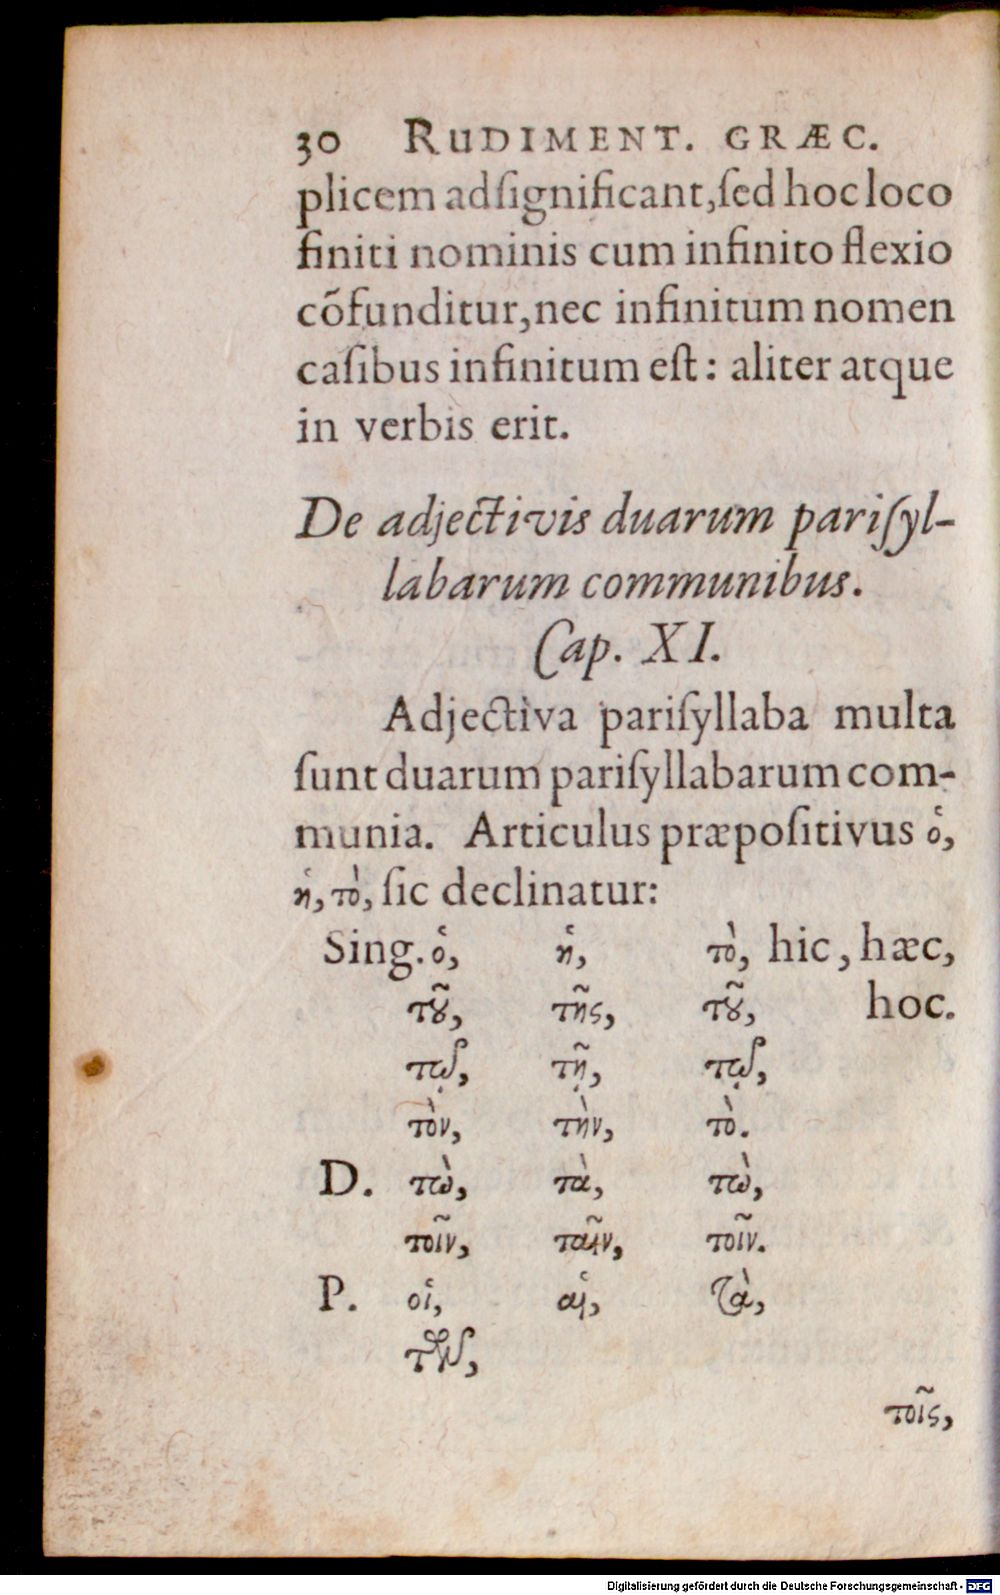 30 RUDIMENT. GRÆC.
plicem adſignificant, ſed hoc loco
finiti nominis cum infinito flexio
cõfunditur, nec infinitum nomen
caſibus infinitum eſt: aliter atque
in verbis erit.
De adjectivis duarum pariſyl-
labarum communibus.
Cap. XI.
Adjectiva pariſyllaba multa
ſunt duarum pariſyllabarum com-
munia. Articulus præpoſitivus ὁ,
ἡ, τὸ, ſic declinatur:
Sing. ὁ, ἡ, τὸ, hic, hæc,
τοῦ, τῆς, τοῦ, hoc.
τῷ, τῇ, τῷ,
τὸν, τὴν, τὸ.
D. τὼ, τὰ, τὼ,
τοῖν, ταῖν, τοῖν.
P. οἱ, αἱ, τὰ,
τῶν,
τοῖς,
Digitalisierung gefördert durch die Deutsche Forschungsgemeinschaft - DFG